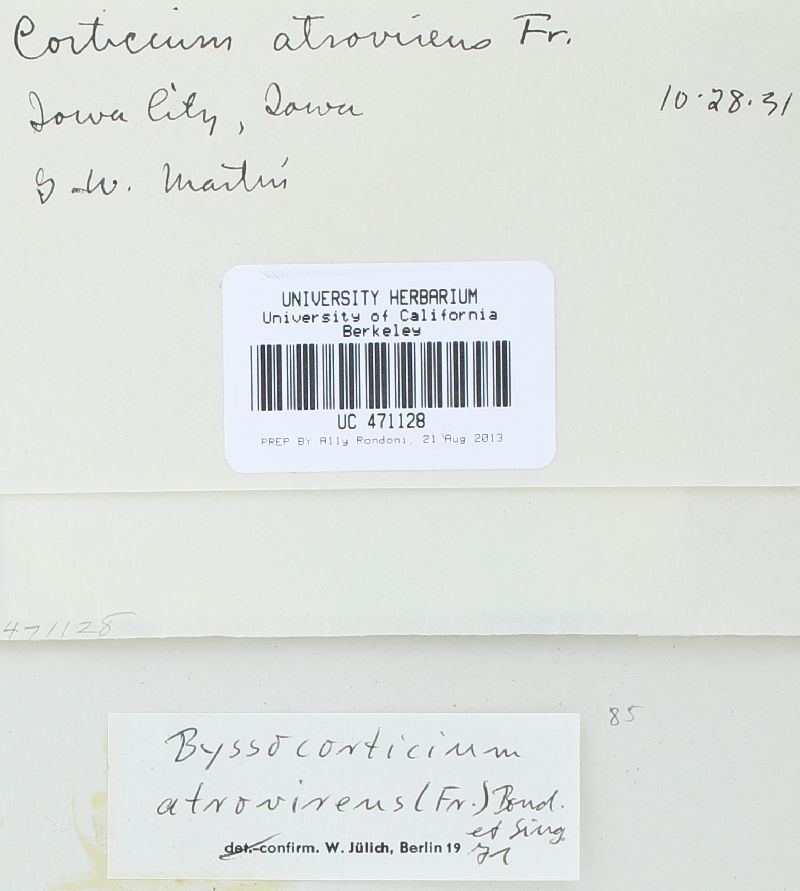 Corticium atrovirens Fr.
Iowa City, Iowa 10.28.31
G. W. Martin
UNIVERSITY HERBARIUM
University of California
Berkeley
UC 471128
PREP BY Ally Rondoni, 21 Aug 2013
471128
85
Byssocorticium
atrovirens (Fr.) Bond.
et Sing
det.-confirm. W. Jülich, Berlin 19 71